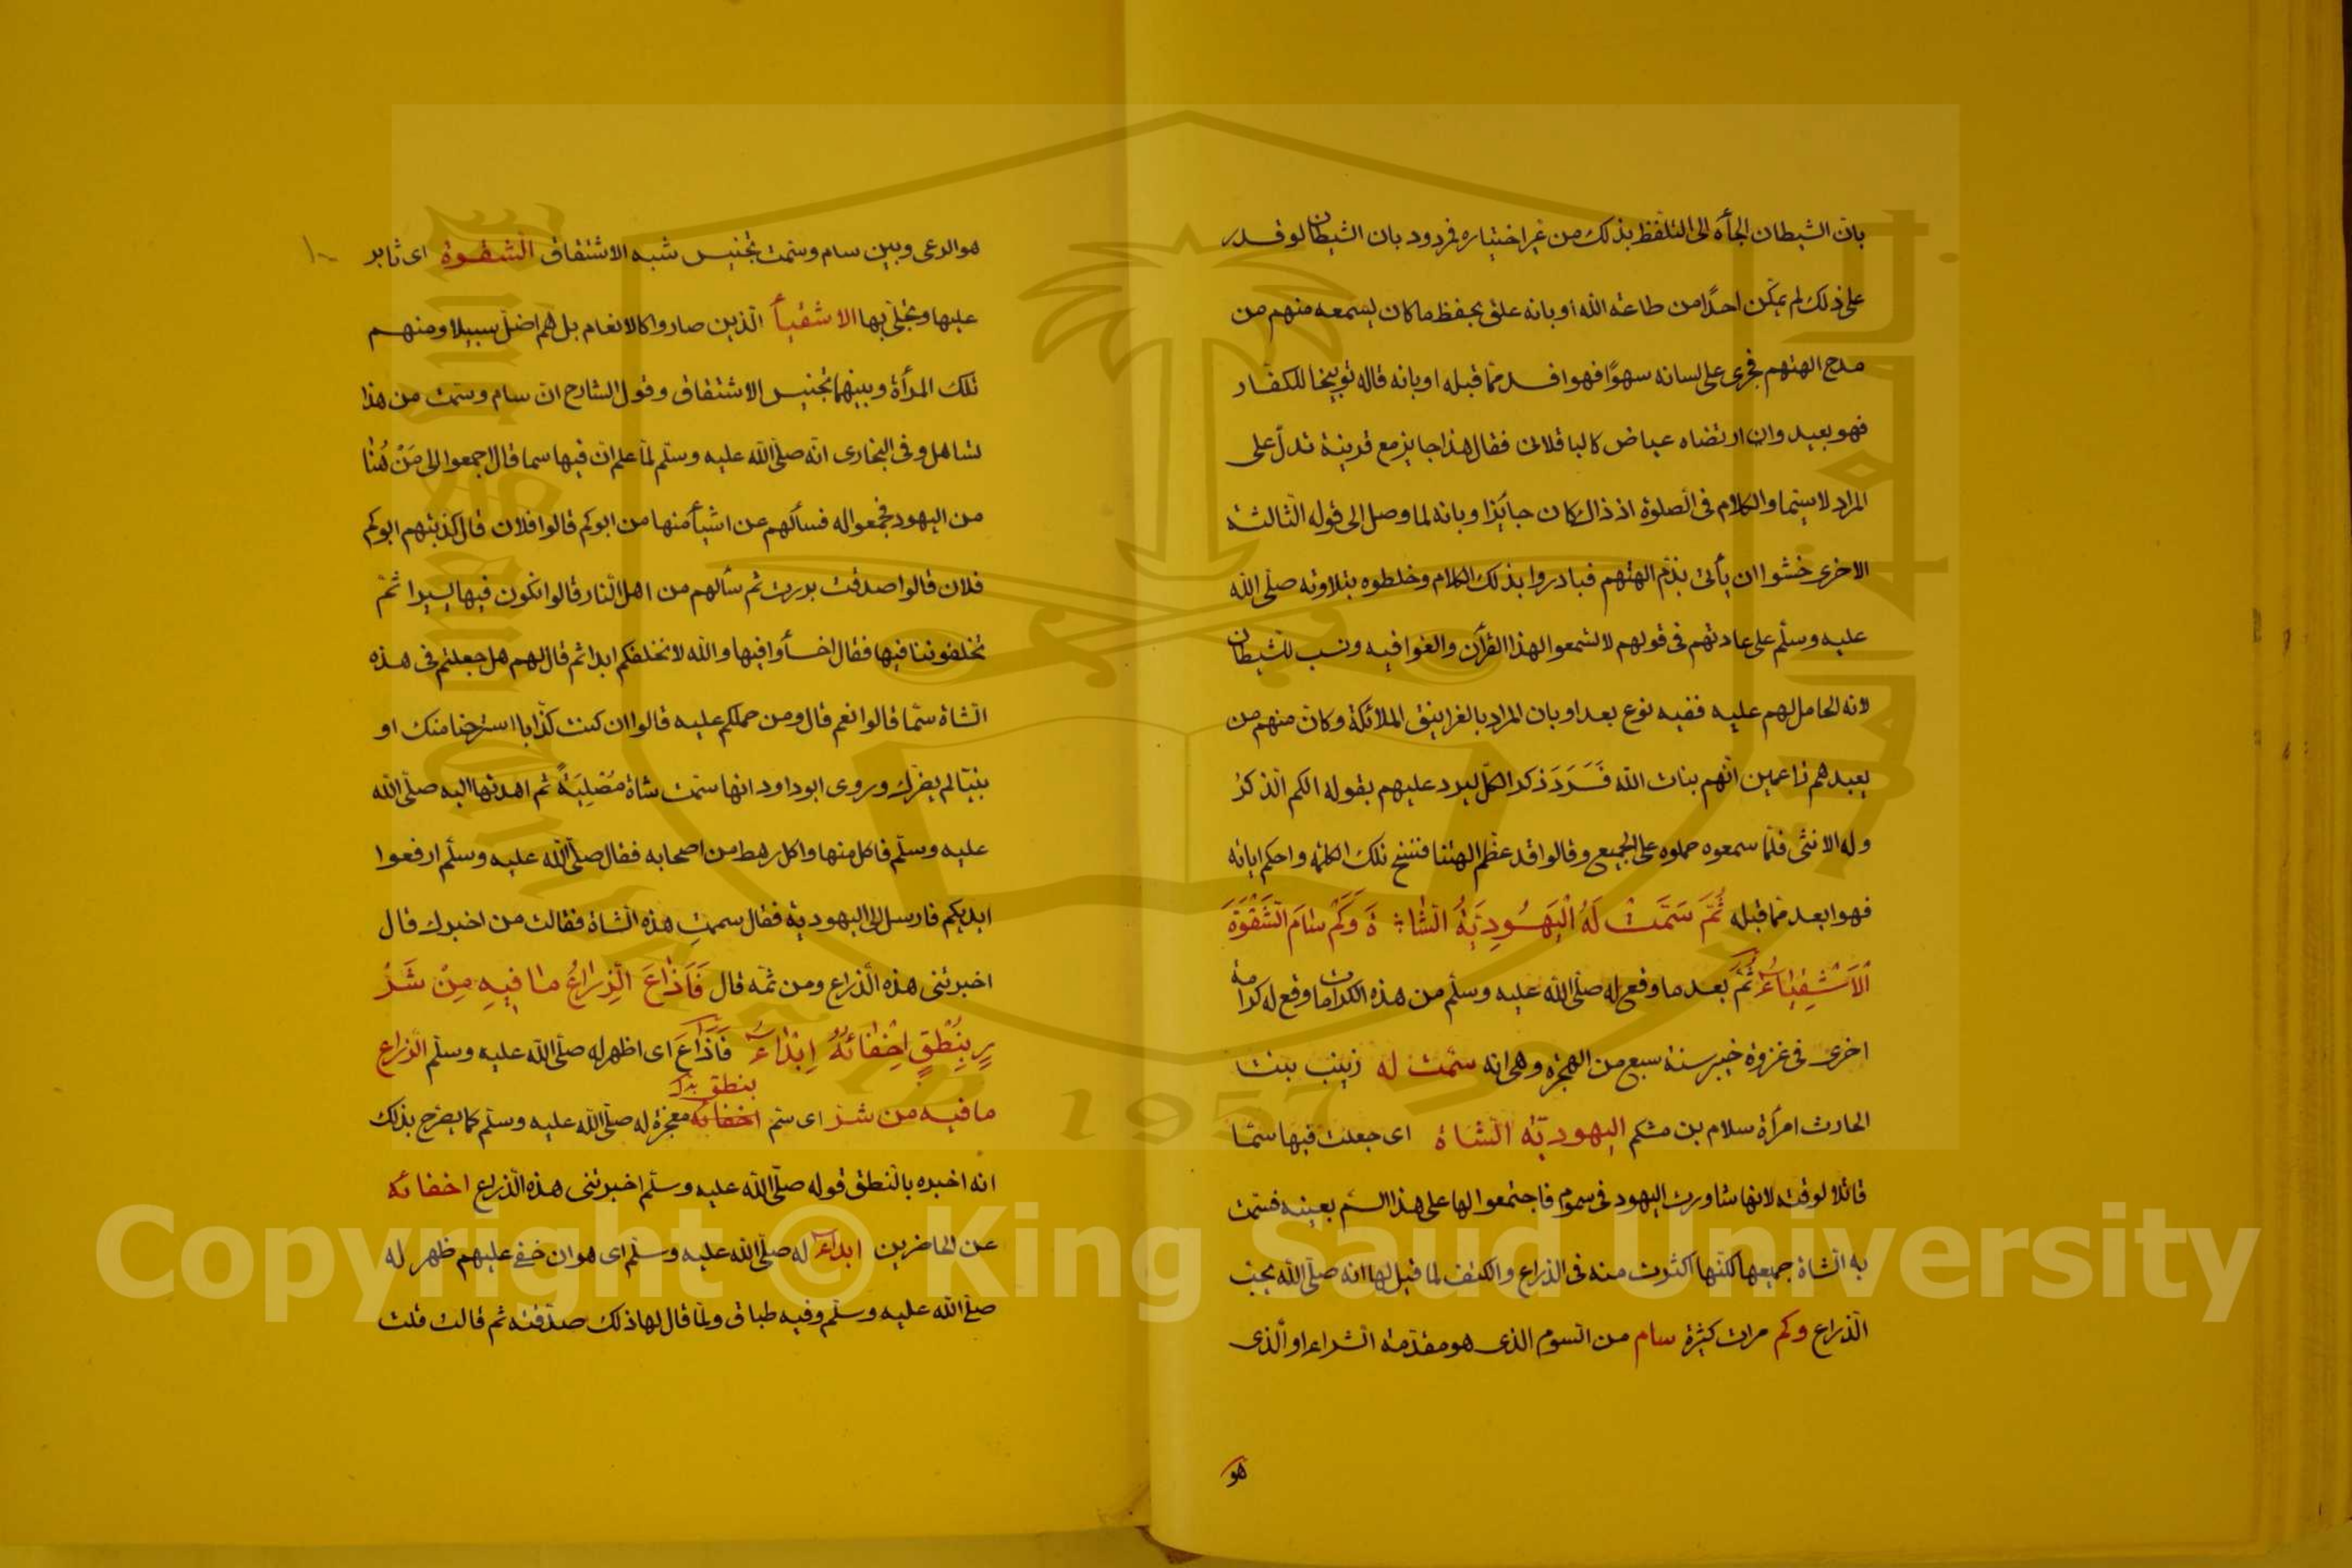 بان الشيطان الجأه الى التلفظ بذلك من غير اختياره فمردود بان الشيطان لو قدر
على ذلك لم يمكن احدا من طاعة الله او بانه علق بحفظ ما كان يسمعه منهم من
مدح الهتهم فجرى على لسانه سهوًا فهو افسد مما قبله او بانه قاله توبيخا للكفار
فهو بعيد وان ارتضاه عياض كالباقلانى فقال هذا جايز مع قرينة تدل على
المراد لا سيما والكلام فى الصلوة اذ ذاك كان جايزا وبانه لما وصل الى قوله الثالثة
الاخرى خشوا ان يأتى بذم الهتهم فبادروا بذلك الكلام وخلطوه بتلاوته صلى الله
عليه وسلم على عادتهم فى قولهم لا تسمعوا لهذا القرآن والغوا فيه ونسب للشيطان
لانه الحامل لهم عليه ففيه نوع بعد او بان المراد بالغرانيق الملائكة وكان منهم من
يعبدهم زاعمين انهم بنات الله فَرَدَ ذكر الكل ليرد عليهم بقوله الكم الذكر
وله الانثى فلما سمعوه حملوه على الجميع وقالوا قد عظم الهتنا فنسخ تلك الكلمة واحكم اياته
فهو ابعد مما قبله ثُمَّ سَمَّتْ لَهُ الْيَهُودِيَّةُ الشَّاةَ وَكَمْ سَامَ الشَّقْوَةَ
الْاَشْقِيَاءُ ثُمَّ بعد ما وقع له صلى الله عليه وسلم من هذه الكرامات ما وقع له كرامة
اخرى فى غزوة خيبر سنة سبع من الهجرة وهى انه سمت له زينب بنت
الحارث امرأة سلام بن مشكم اليهودية الشاة اى جعلت فيها سما
قاتلا لوقته لانها شاورت اليهود فى سموم فاجتمعوا لها على هذا السم بعينه فسمت
به الشاة جميعها لكنها اكثرت منه فى الذراع والكتف لما قيل لها انه صلى الله يحب
الذراع وكم مرات كثيرة سام من السوم الذى هو مقدمة الشراء او الذى
هو
هو الرعى وبين سام وسمت تجنيس شبه الاشتقاق الشقوة اى ثابر
عليها وتحلى بها الاشقيأ الذين صاروا كالانعام بل هم اضل سبيلا ومنهم
تلك المرأة وبينهما تجنيس الاشتقاق وقول الشارح ان سام وسمت من هذا
تساهل وفى البخارى انه صلى الله عليه وسلم لما علم ان فيها سما قال اجمعوا لى مَنْ هُنَا
من اليهود فجمعوا له فسألهم عن اشيأ منها من ابوكم قالوا فلان قال كذبتم ابوكم
فلان قالوا صدقت بررت ثم سألهم من اهل النار قالوا نكون فيها يسيرا ثم
تخلفوننا فيها فقال اخسأوا فيها والله لا نخلفكم ابدا ثم قال لهم هل جعلتم فى هذه
الشاة سما قالوا نعم قال ومن حملكم عليه قالوا ان كنت كذابا استرحنا منك او
نبيا لم يضرك وروى ابو داود انها سمت شاة مَصْلِيَةً ثم اهدتها اليه صلى الله
عليه وسلم فاكل منها واكل رهط من اصحابه فقال صلى الله عليه وسلم ارفعوا
ايديكم فارسل الى اليهودية فقال سممتِ هذه الشاة فقالت من اخبرك قال
اخبرتنى هذه الذراع ومن ثمه قال فَاَذَاعَ الذِّرَاعُ مَا فِيهِ مِنْ شَرْ
رٍ بِنُطْقٍ اِخْفَائُهُ اِبْدَاءُ فَاَذَاعَ اى اظهر له صلى الله عليه وسلم الذراع
ما فيه من شر اى سم اخفائه بنطق معجزة له صلى الله عليه وسلم كما يصرح بذلك
انه اخبره بالنطق قوله صلى الله عليه وسلم اخبرتنى هذه الذراع اخفائه
عن الحاضرين ابداء له صلى الله عليه وسلم اى هو ان خفى عليهم ظهر له
صلى الله عليه وسلم وفيه طباق ولما قال لها ذلك صدقته ثم قالت قلت
Copyright © King Saud University
1957